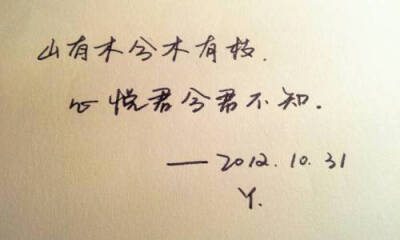 山有木兮木有枝.
心悦君兮君不知.
——2012.10.31
Y.